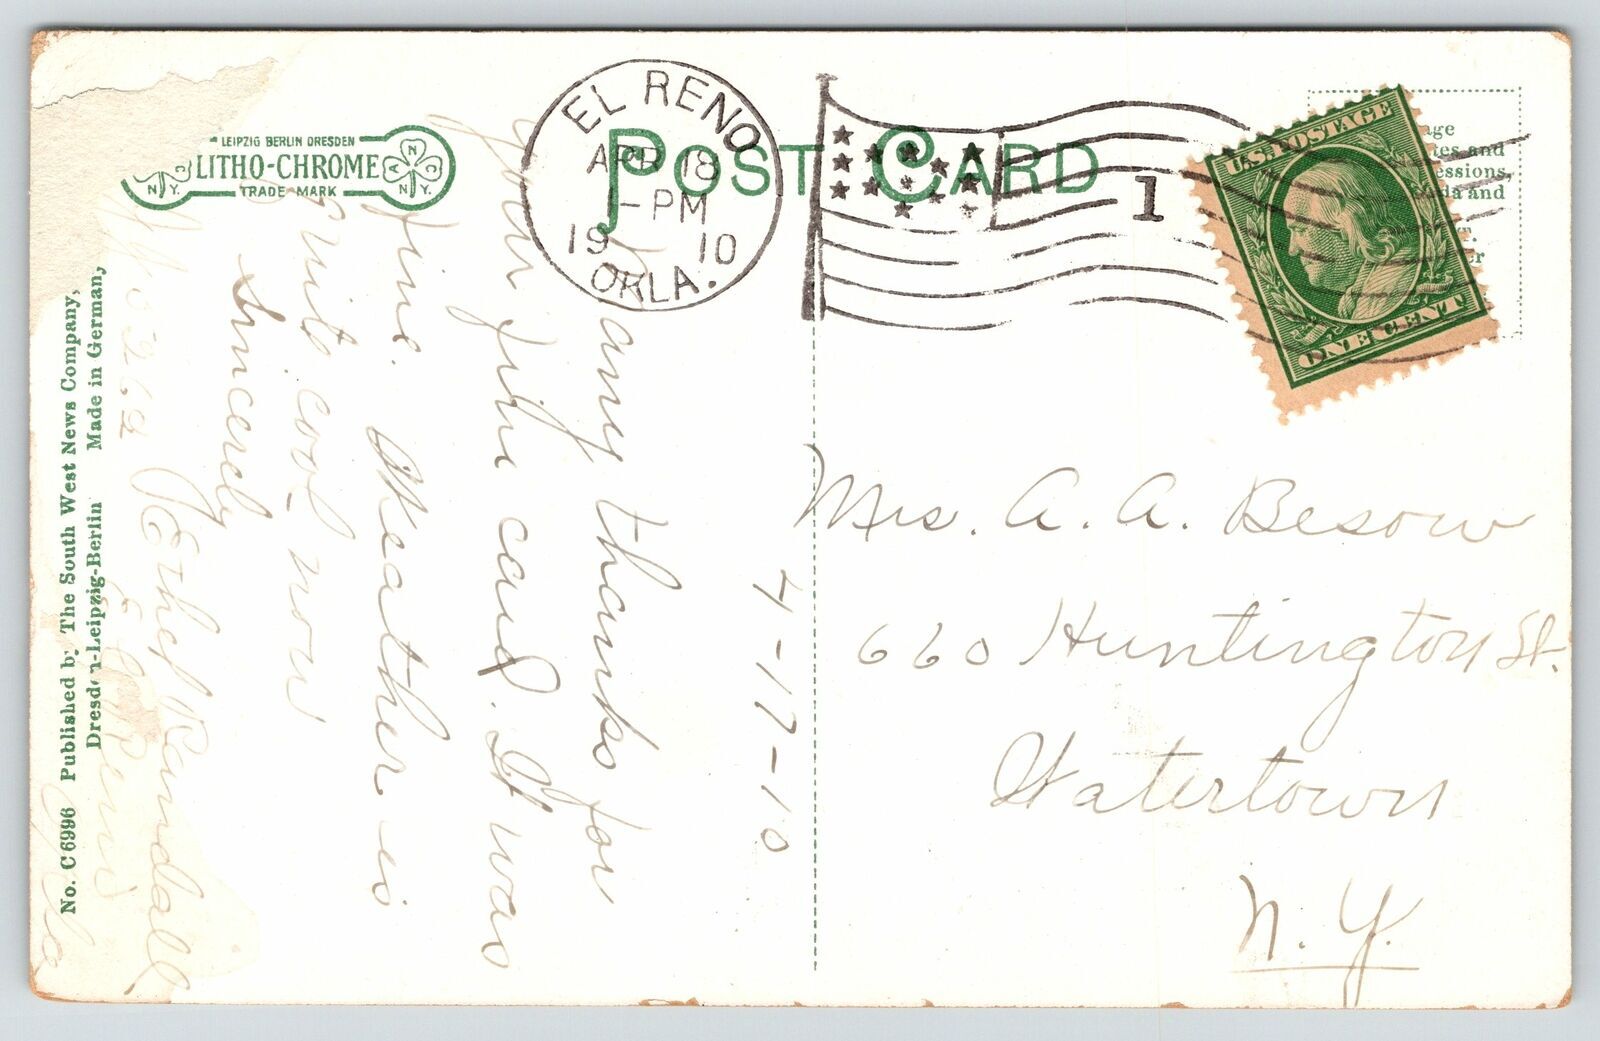 POST CARD
LEIPZIG BERLIN DRESDEN
LITHO-CHROME
TRADE MARK
C
N N.Y.
N
C A
N.Y.
EL RENO
APR 18
1-PM
19 10
OKLA.
1
U.S. POSTAGE
ONE CENT
and
and
4-17-10
Many thanks for
your card. It was
fine. Weather is
quite cool now
Sincerely
Ethel Randall
El Reno
Mrs. A. A. Besow
660 Huntington St.
Watertown
N. Y.
No. C 6996 Published by The South West News Company,
Dresden-Leipzig-Berlin Made in German,